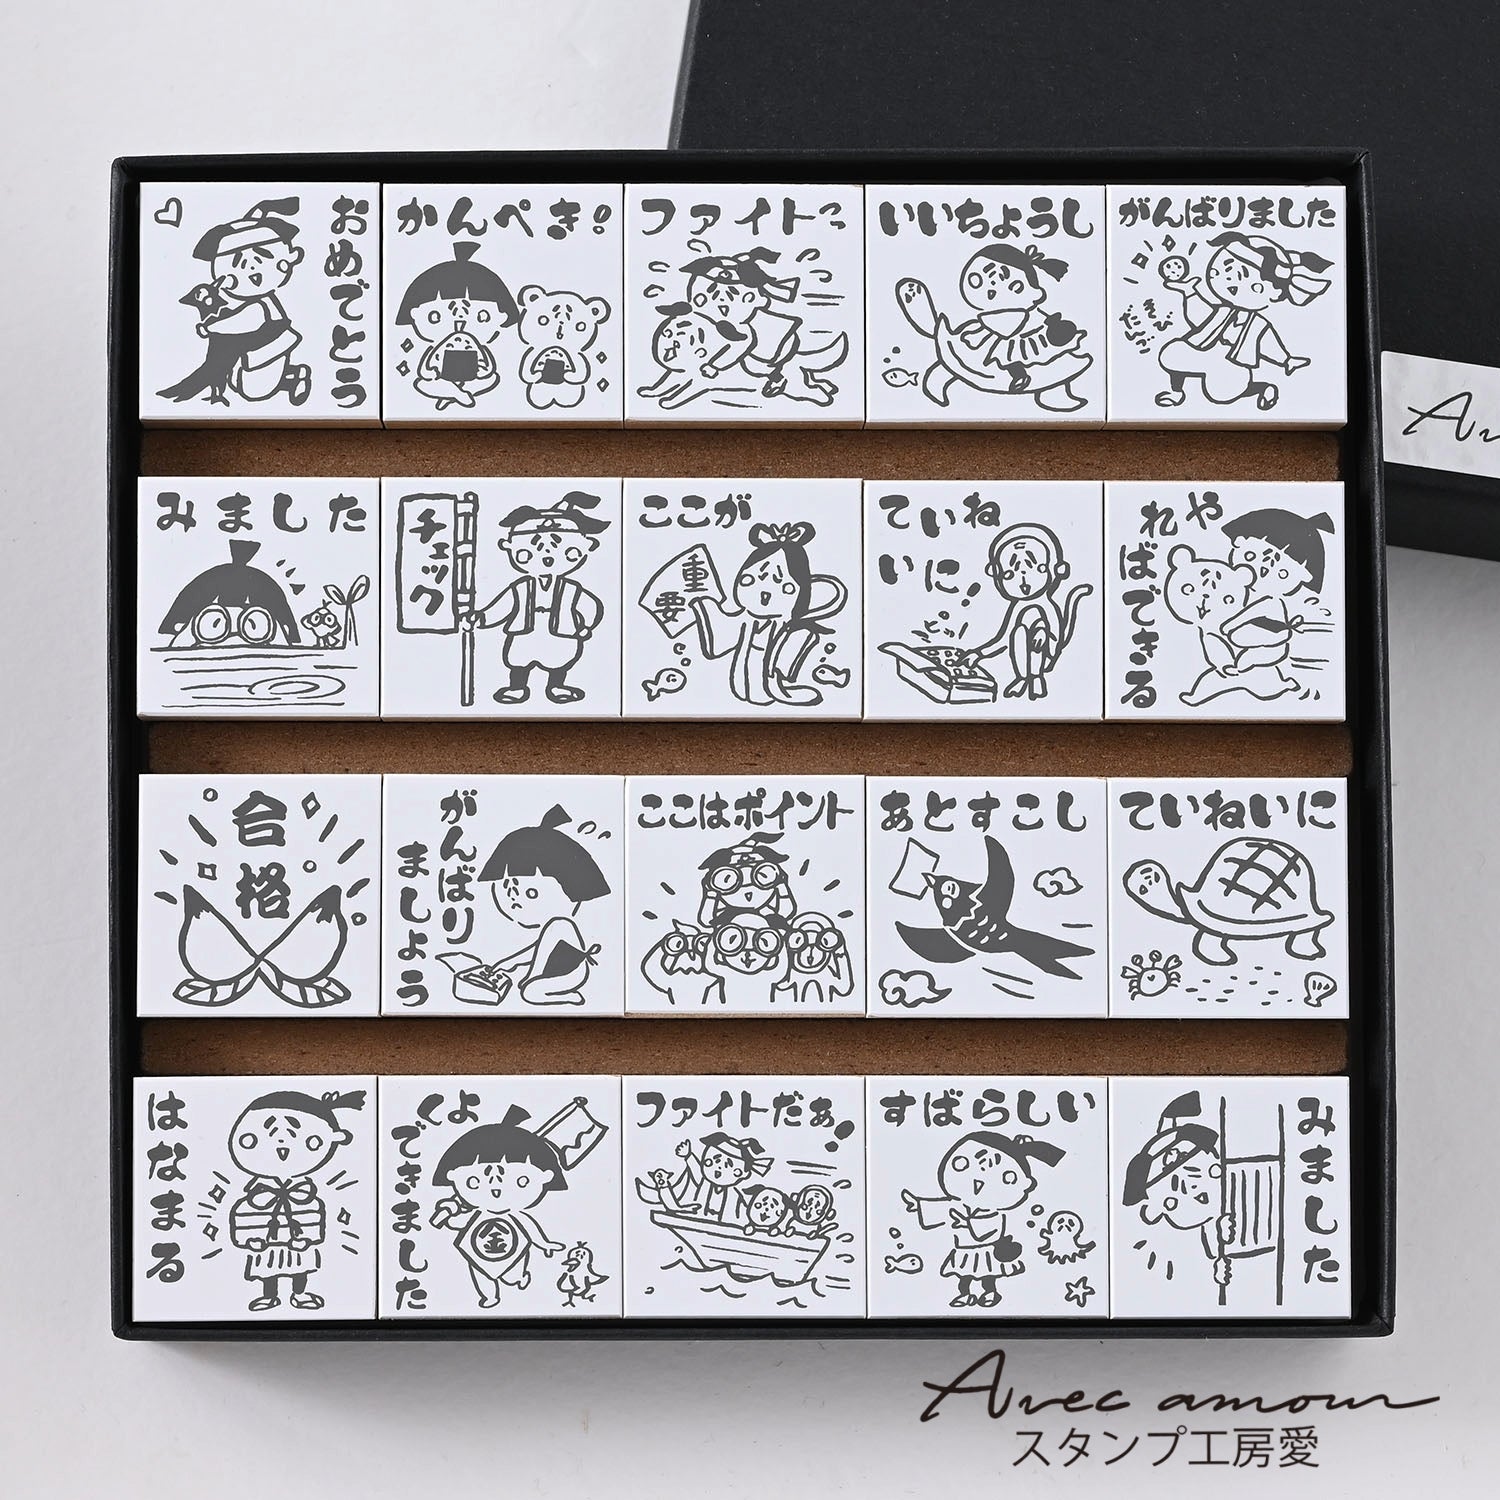 おめでとう
かんぺき!
ファイトっ
いいちょうし
がんばりました
みました
チェック
ここが
重要
ていね
いに!
やればできる
合格
がんばり
ましょう
ここはポイント
あとすこし
ていねいに
はなまる
よく
できました
金
ファイトだぁ!
すばらしい
みました
Avec amour
スタンプ工房愛